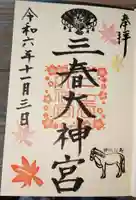 奉拝
三春大神宮
令和六年十一月三日